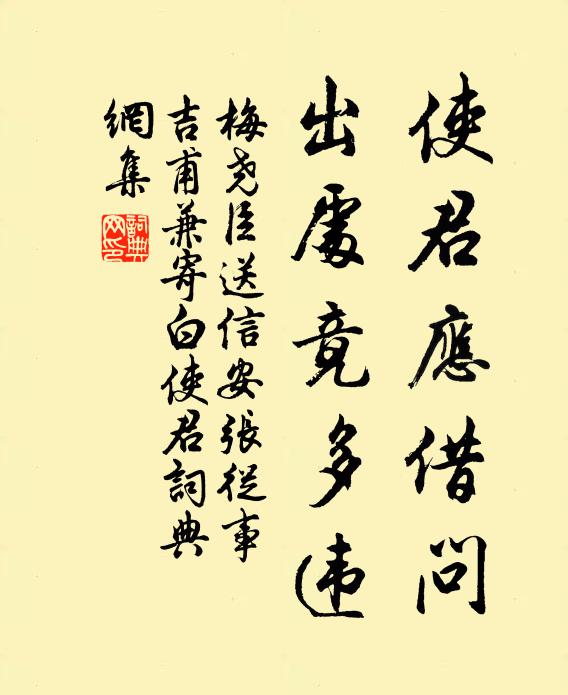 使君應借問
出處竟多违
梅尧臣送信安張從事
吉甫兼寄白使君詞典
網集
詞典網印